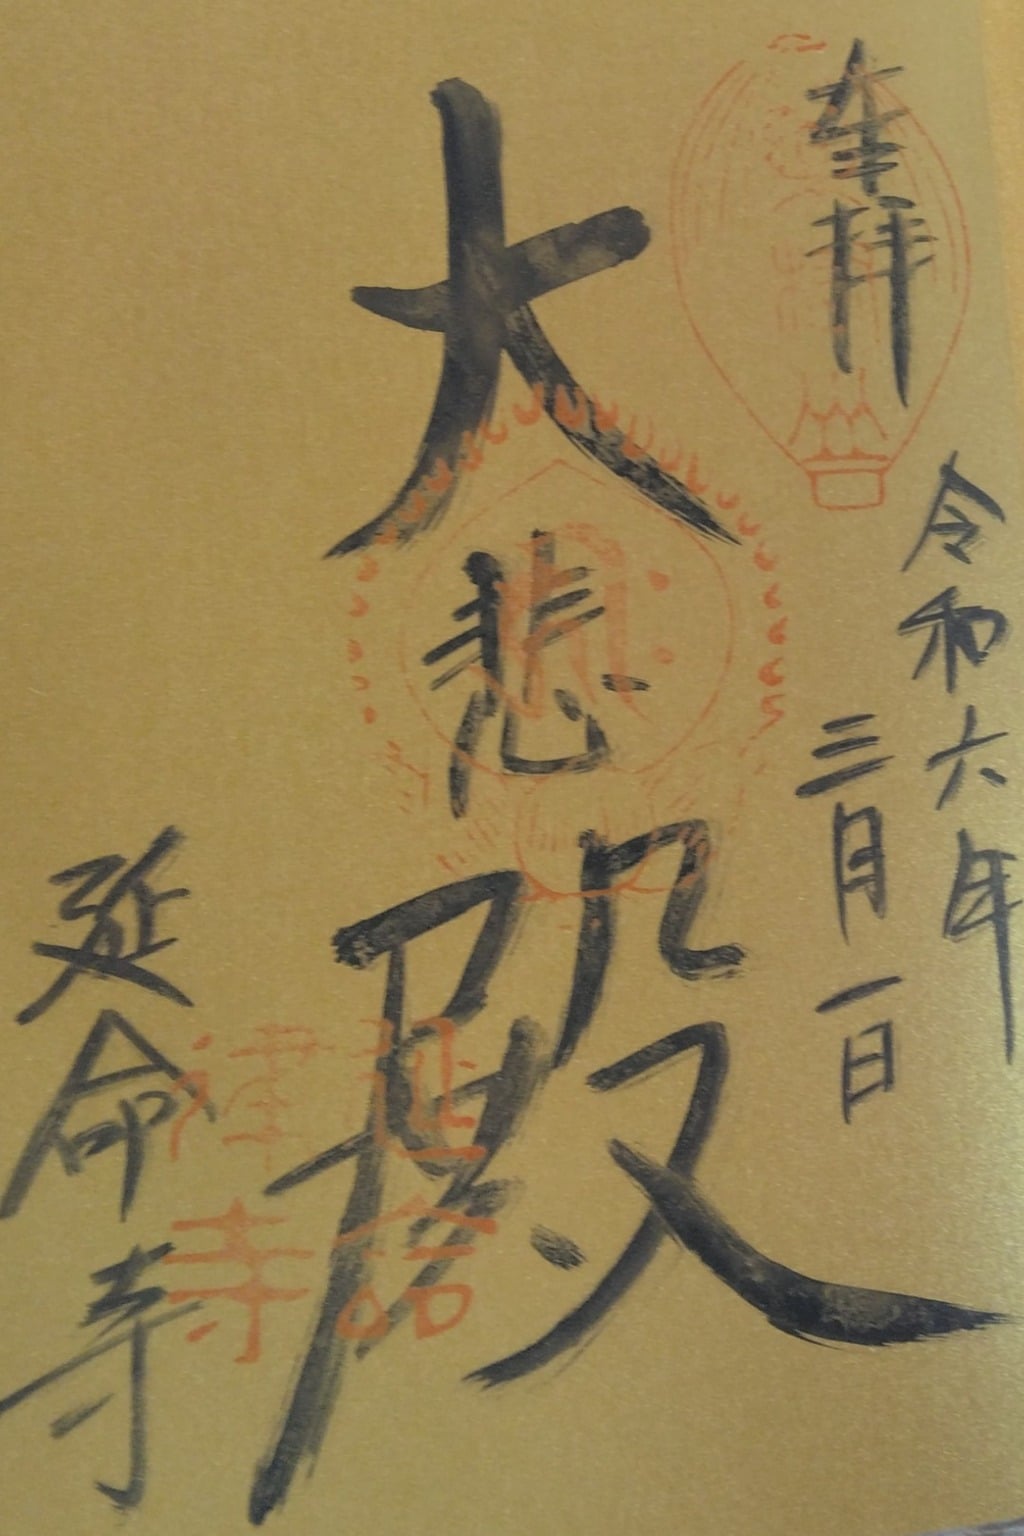 奉拝
令和六年
三月一日
大悲殿
延命寺